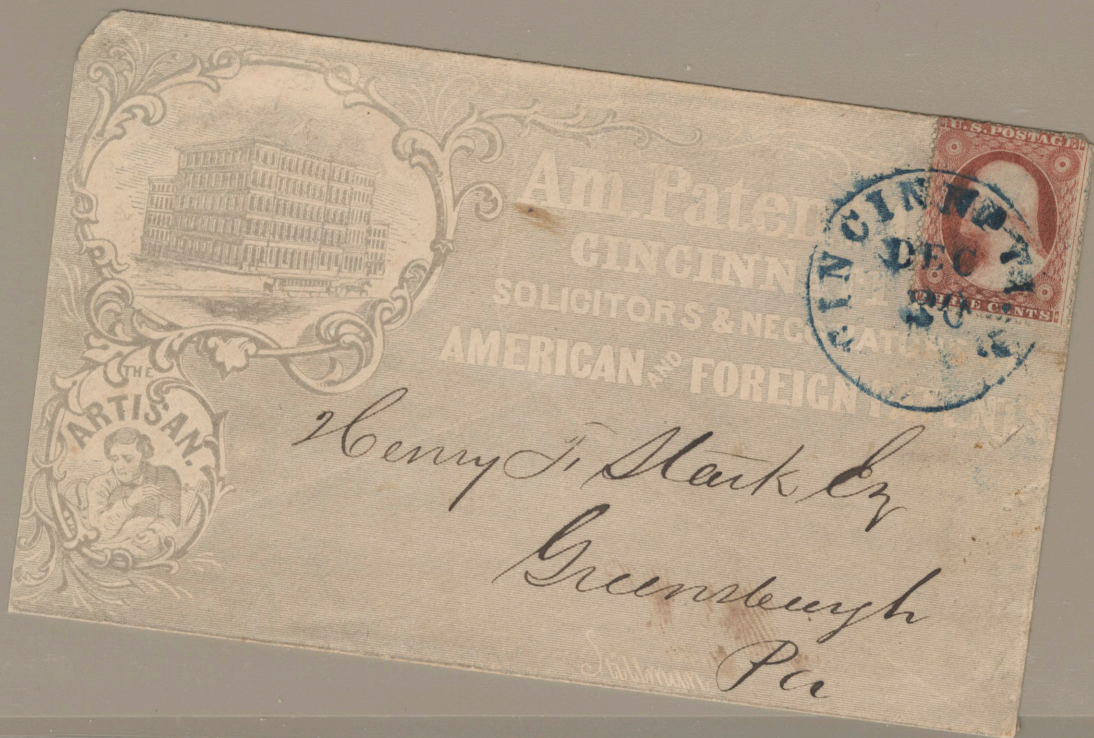 THE
ARTISAN.
Am. Paten
CINCINN
SOLICITORS & NEGO
AMERICAN AND FOREIGN PATENTS
U.S. POSTAGE
THREE CENTS
CINCINNATI
DEC
20
Henry F. Stark Esq
Greensburgh
Pa